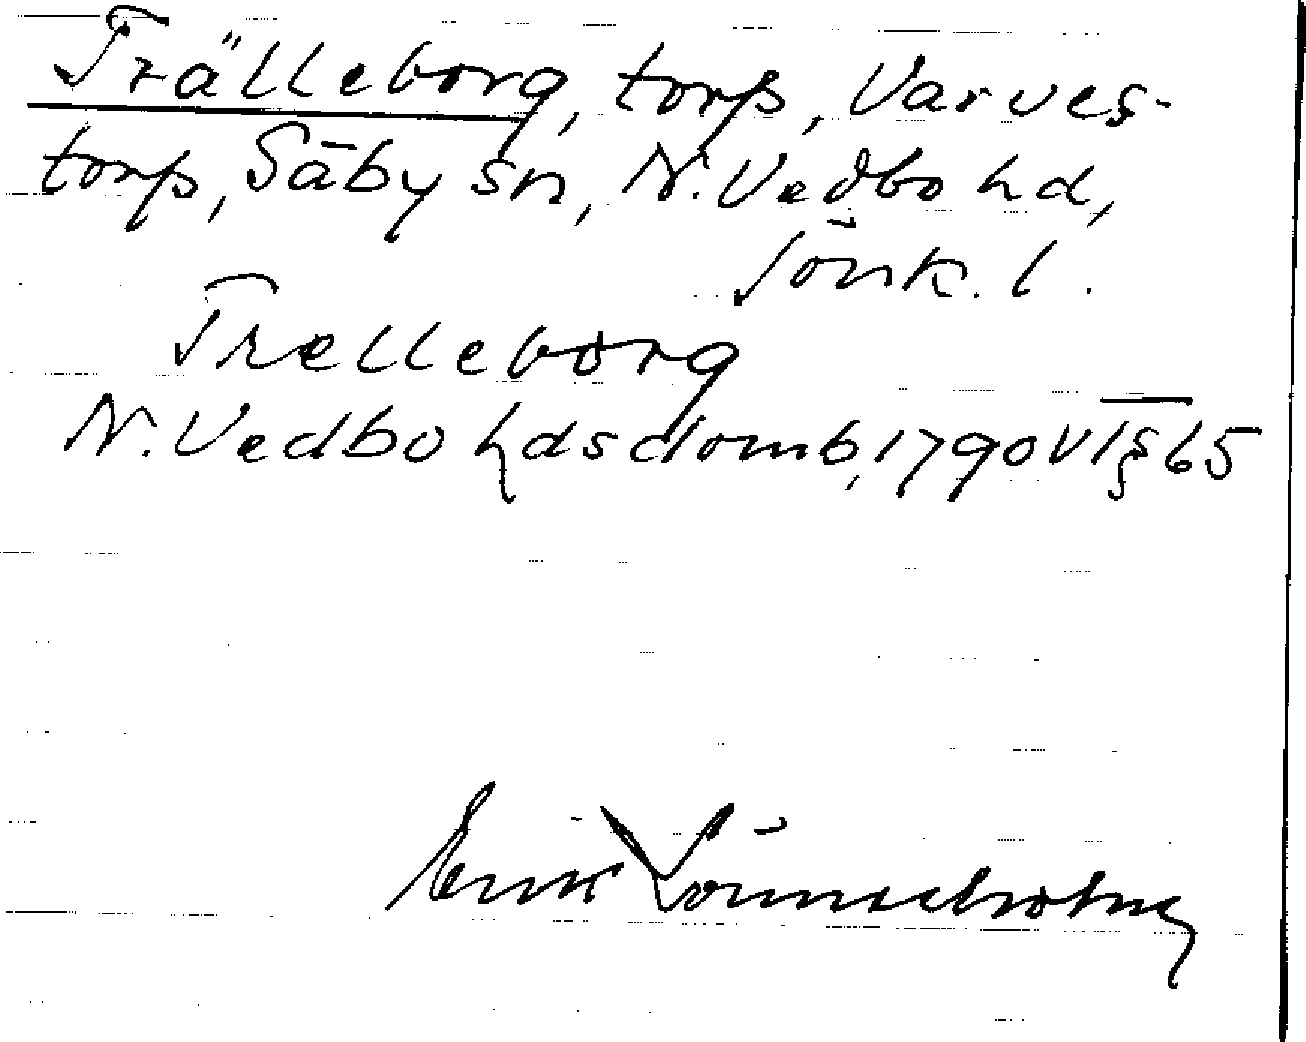 Trälleborg, torp, Varves-
torp, Säby sn, N. Vedbo hd,
Jönk. l.
Trælleborg
N. Vedbo hdsdomb, 1790 VI § 65
Erik